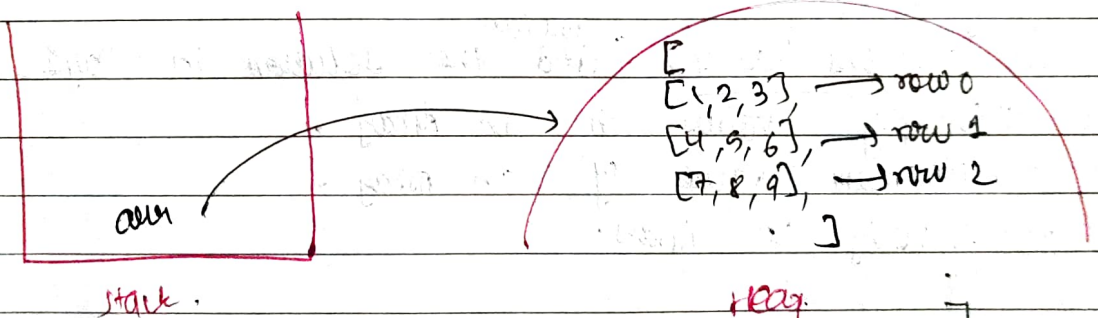 [
[1,2,3], → row 0
[4,5,6], → row 1
[7,8,9], → row 2
]
arr
Stack.
Heap.